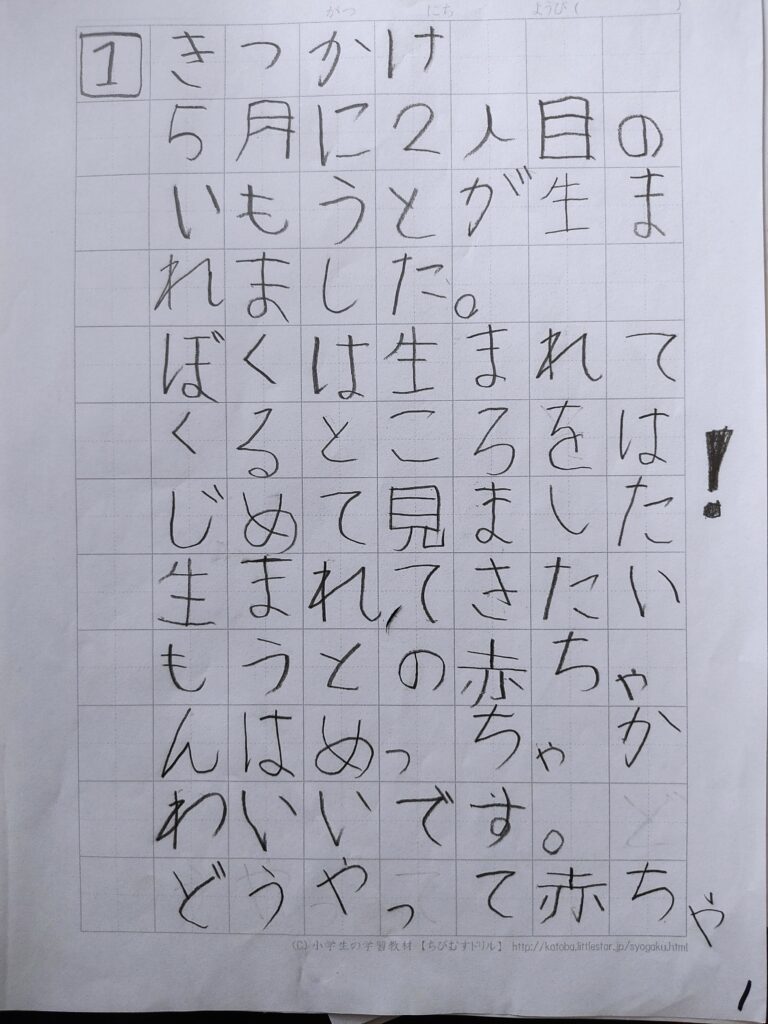 がつ にち ようび( )
1 きっかけ
5月に2人目の
いもうとが生ま
れました。
ぼくは生まれて
くるところをは
じめて見ました
生まれてきたい
もうとの赤ちゃ
んはめっちゃか
わいいです。
どうやって赤ちゃ
!
(C)小学生の学習教材【ちびむすドリル】 http://katoba.littlestar.jp/syogaku.html
1